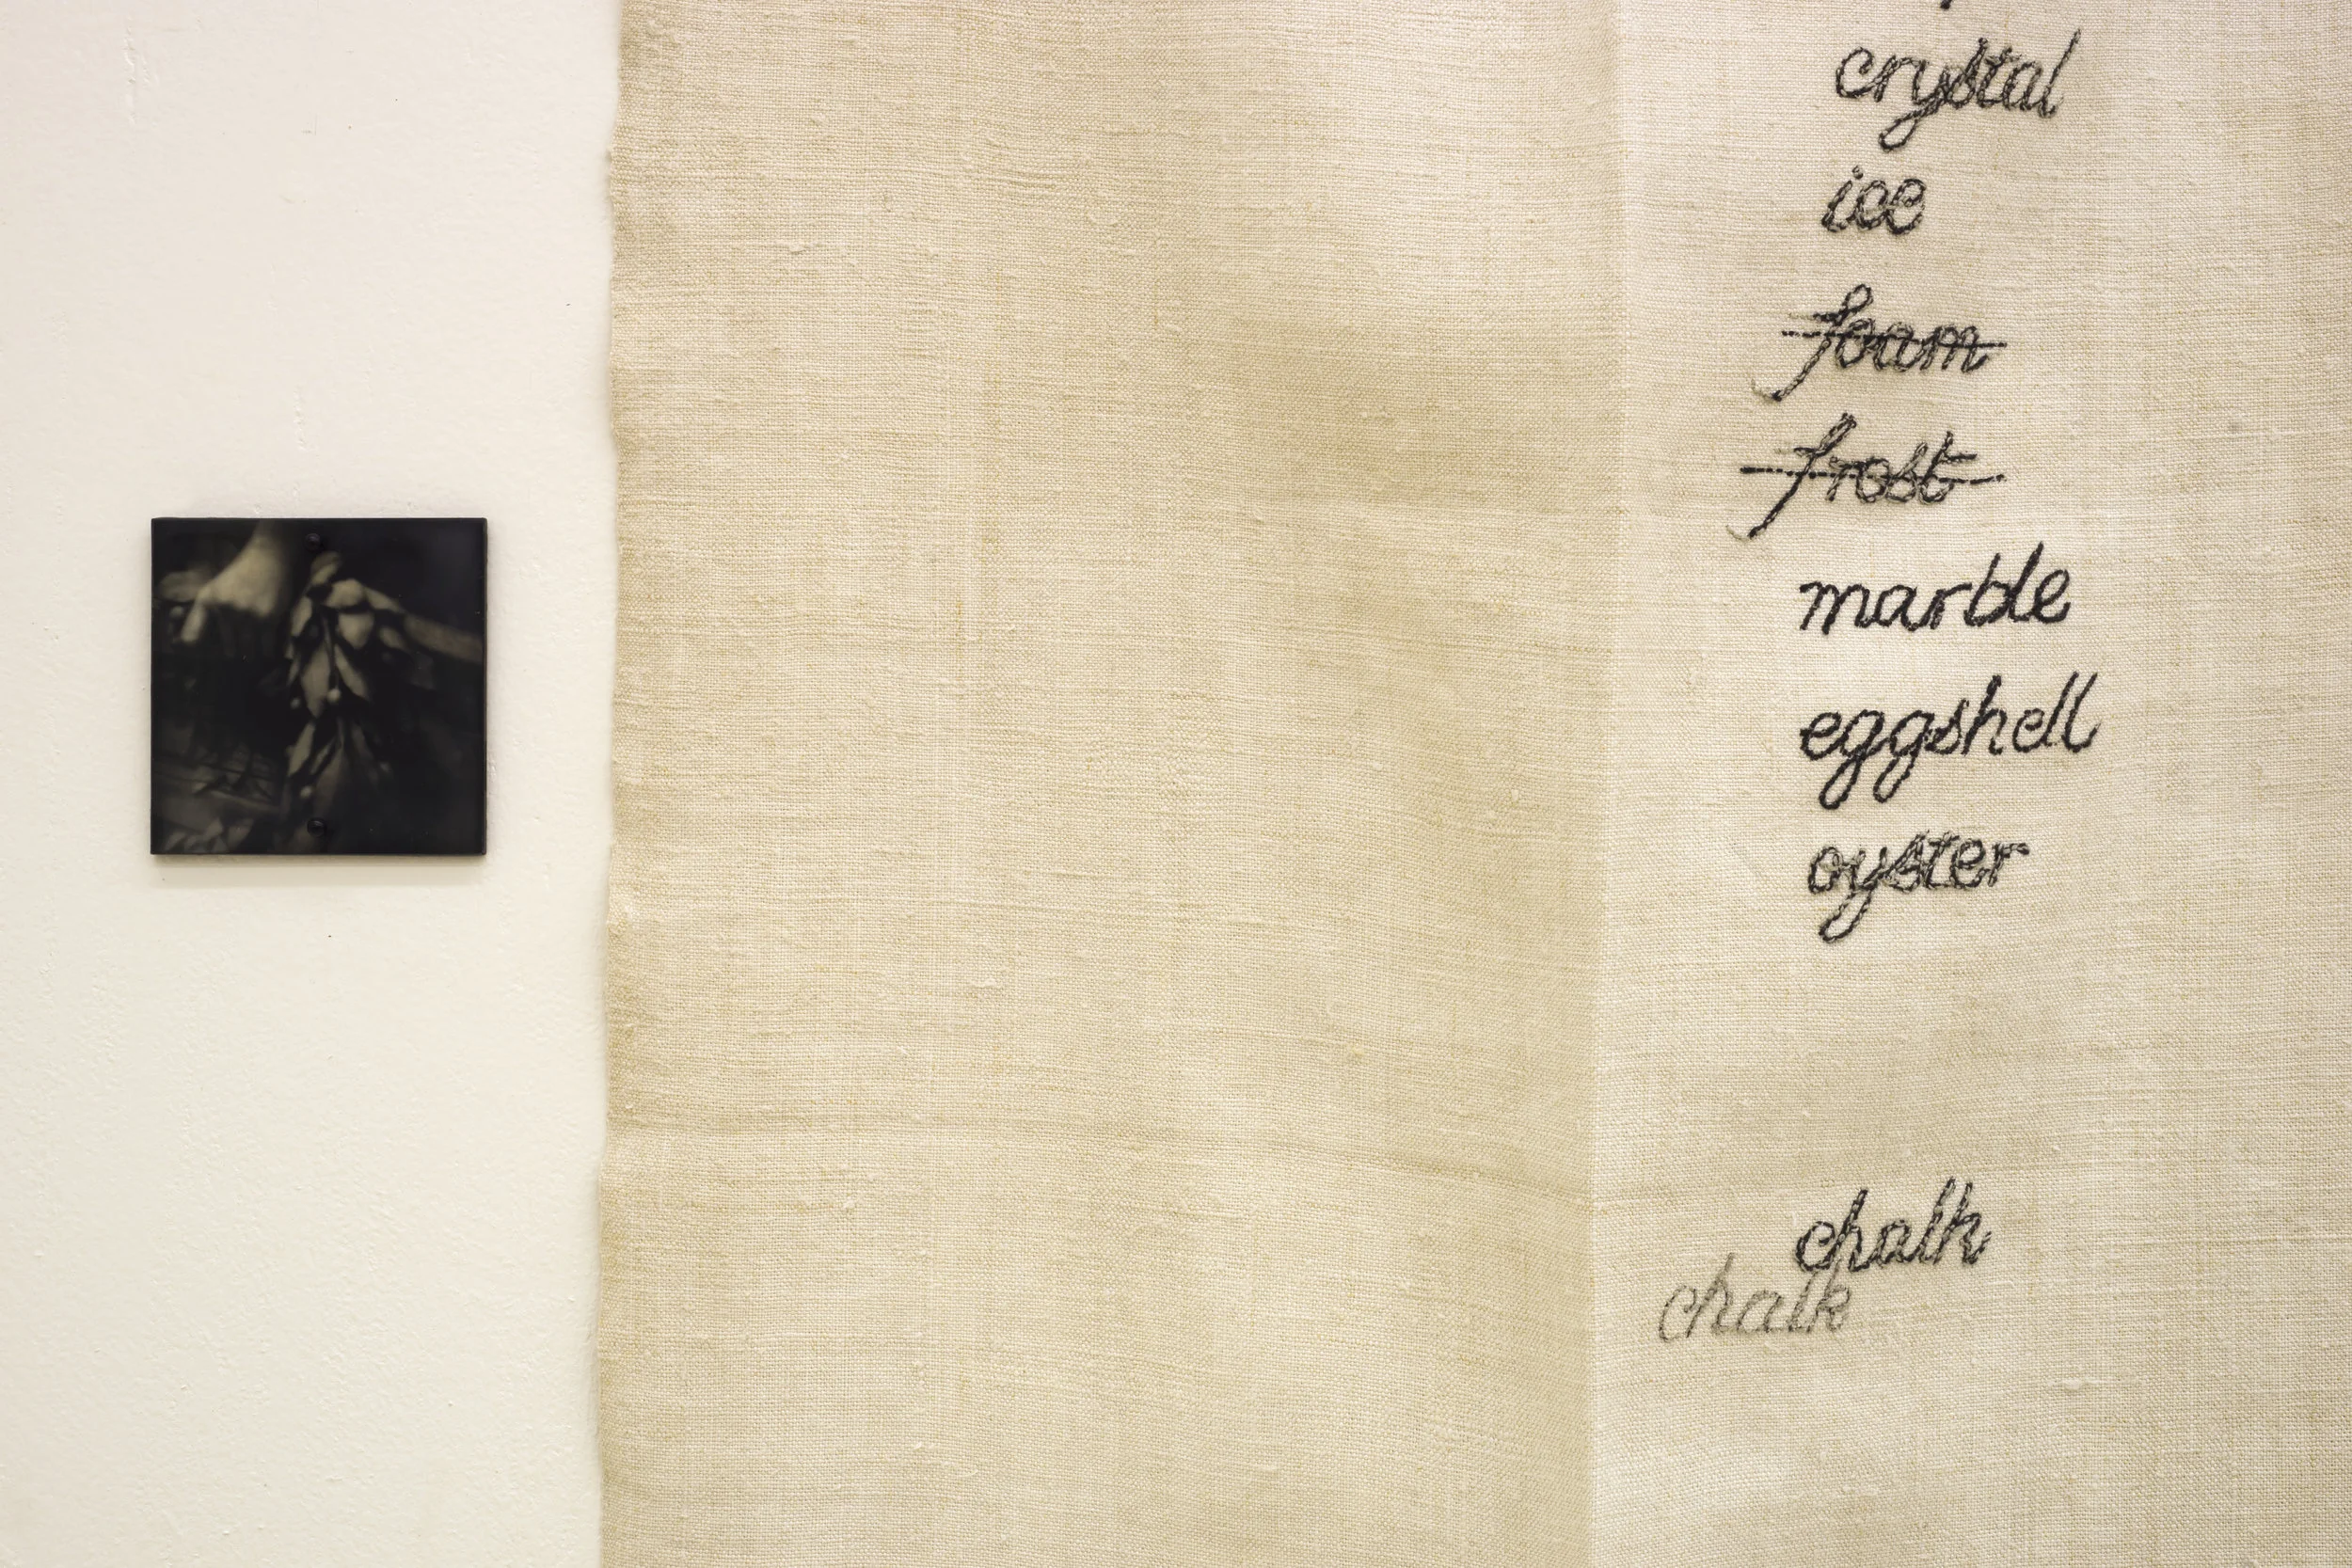 crystal
ice
foam
frost
marble
eggshell
oyster
chalk
chalk